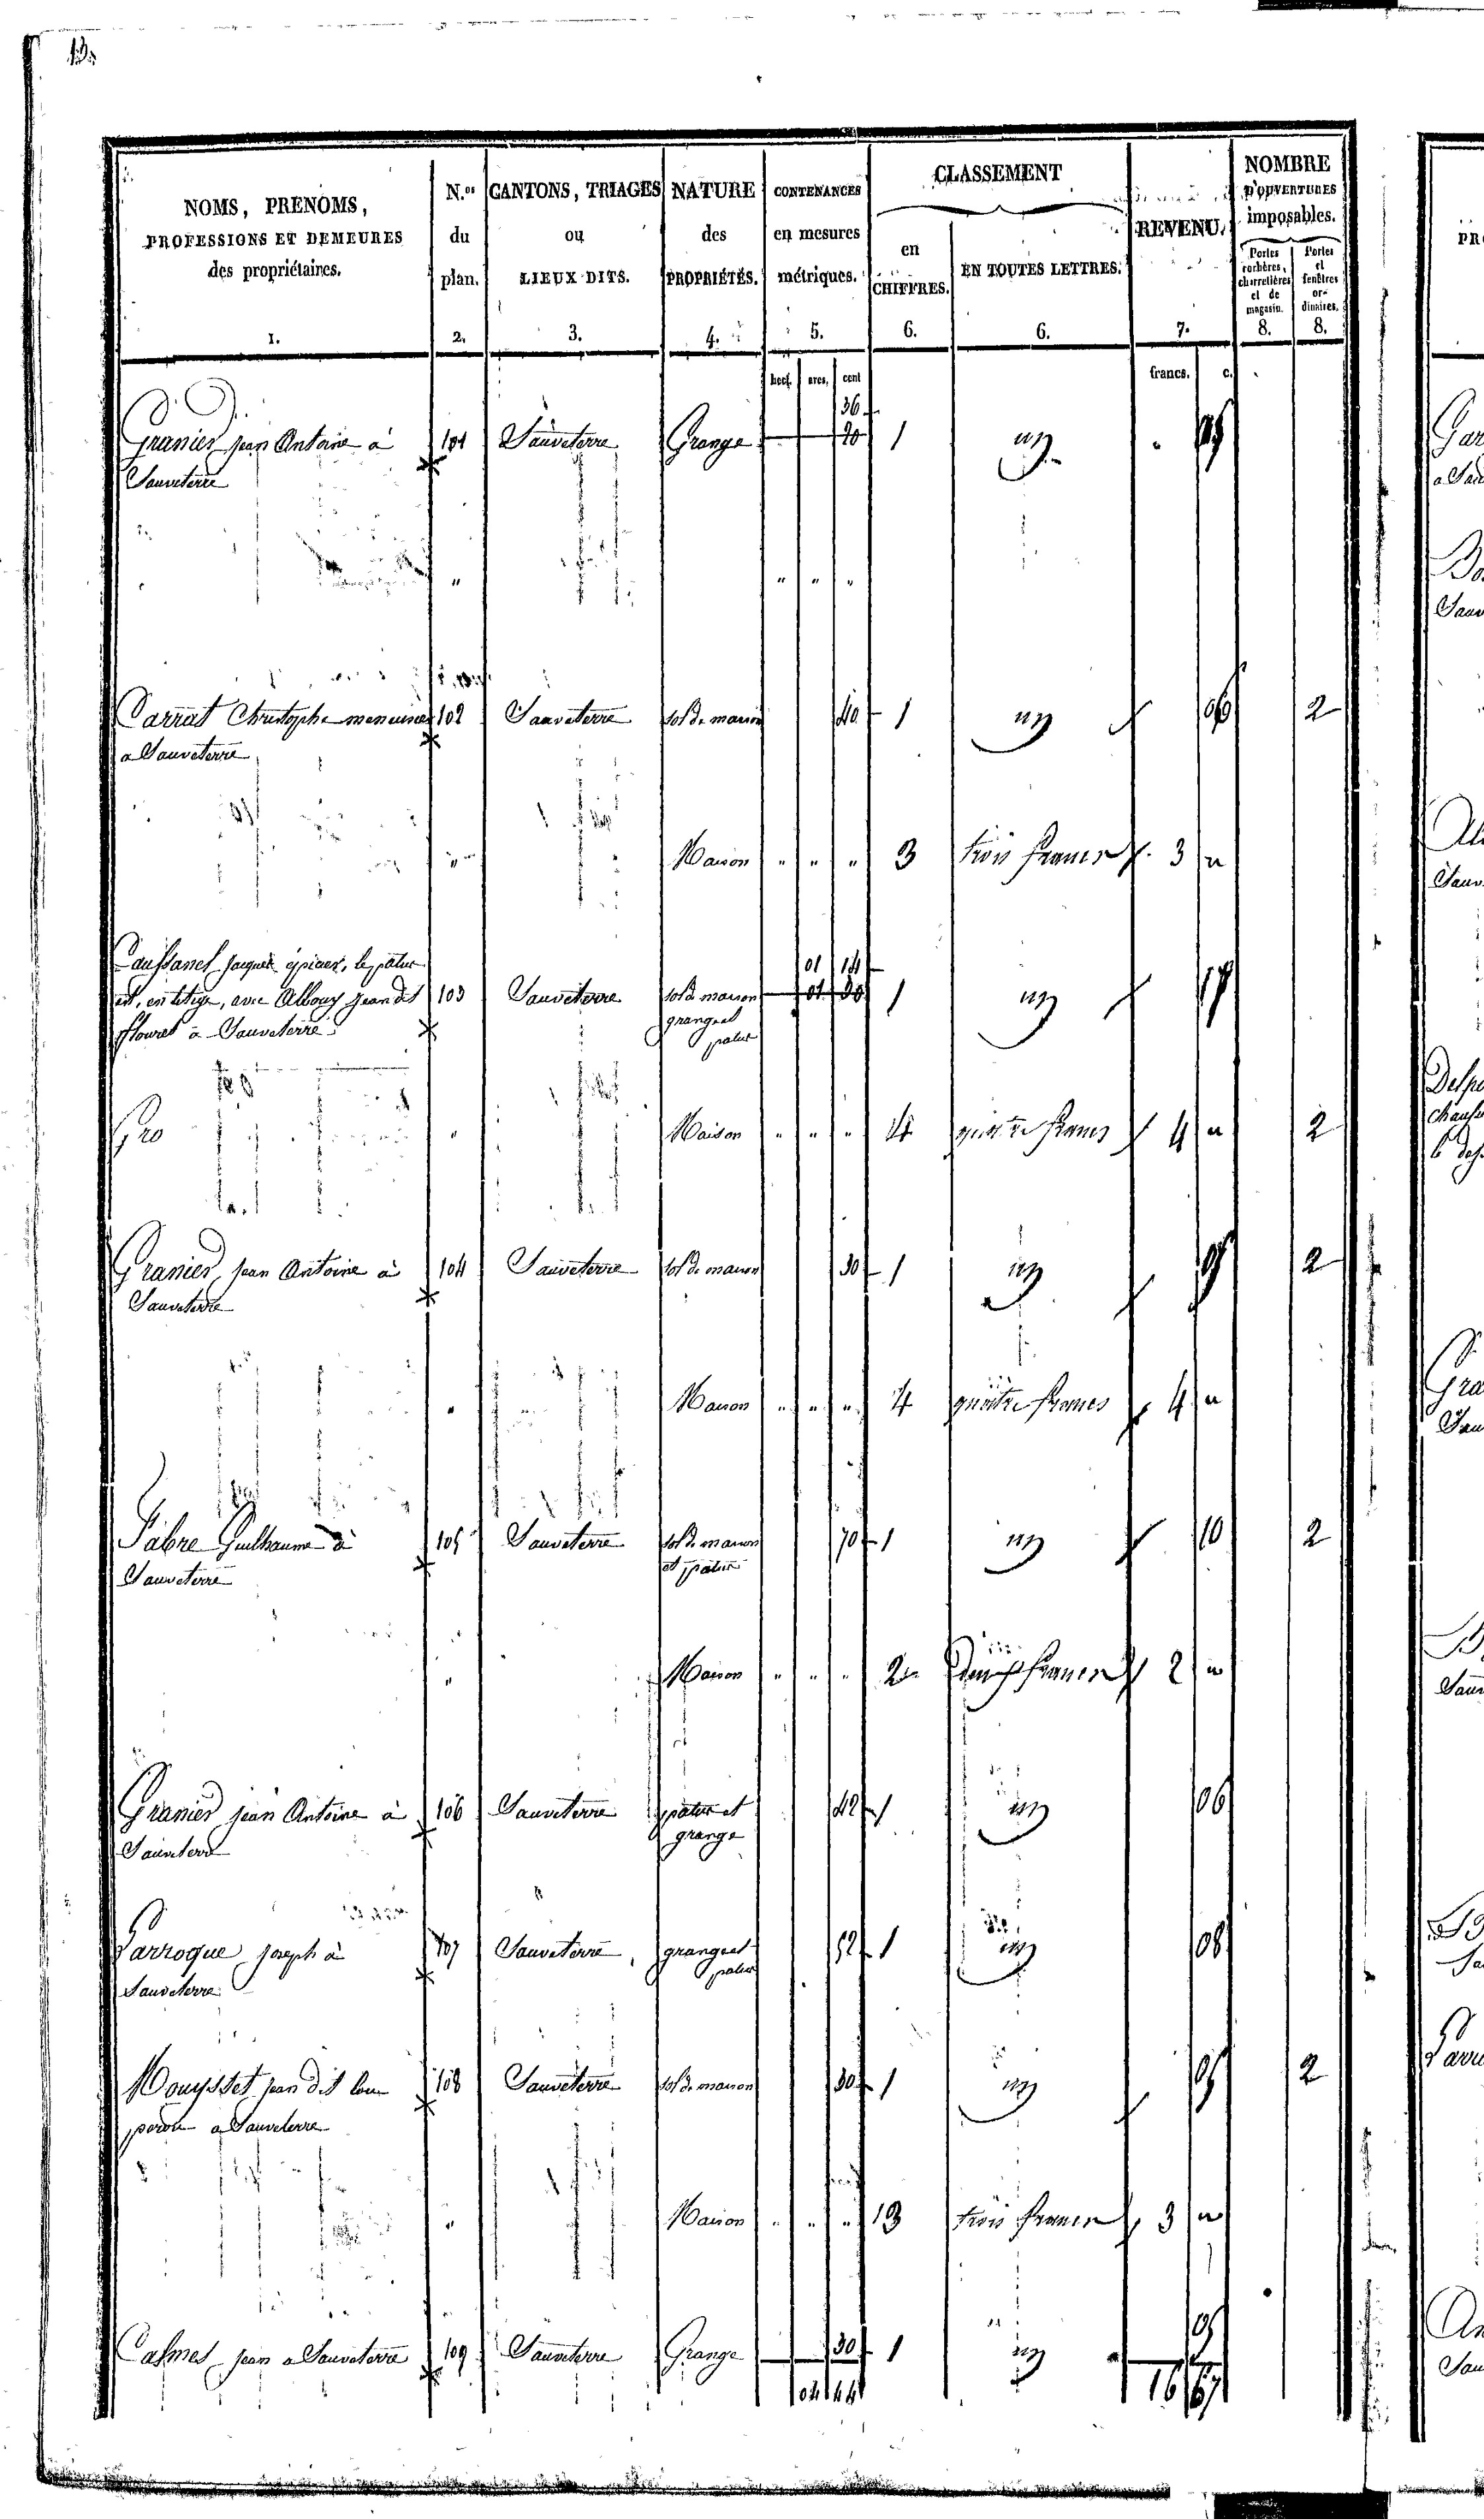 13.
NOMS, PRENOMS,
PROFESSIONS ET DEMEURES
des propriétaires.
1.
N.os
du
plan.
2.
CANTONS, TRIAGES
ou
LIEUX DITS.
3.
NATURE
des
PROPRIÉTÉS.
4.
CONTENANCES
en mesures
métriques.
5.
CLASSEMENT
en
CHIFFRES.
6.
EN TOUTES LETTRES.
6.
REVENU.
7.
NOMBRE
D'OUVERTURES
imposables.
Portes
cochères,
charretières
et de
magasin.
8.
Portes
et
fenêtres
or-
dinaires.
8.
hect. ares. cent francs. c.
36
Granier jean Antoine à 101 Sauveterre Grange 1 un
Sauveterre
" " " "
Carrat Christophe menuisier 102 Sauveterre sol de maison 40 1 un 06 2
a Sauveterre
" Maison " " " 3 trois francs 3 "
Caussanel jacques épicier, le patus 01 14
est, en litige, avec Albouy jean dit 103 Sauveterre sol de maison 1 un 17
flouret à Sauveterre grange et
patus
Maison " " " 4 quatre francs 4 " 2
Granier, jean Antoine à 104 Sauveterre sol de maison 30 1 un 2
Sauveterre
" Maison " " " 4 quatre francs 4 "
Fabre Guilhaume à 105 Sauveterre sol de maison 70 1 un 10 2
Sauveterre et patus
" Maison " " " 2 deux francs 2 "
Granier jean Antoine à 106 Sauveterre patus et 42 1 un 06
Sauveterre grange
Larroque joseph à 107 Sauveterre grange et 52 1 un 08
Sauveterre patus
Mouysset jean dit lou 108 Sauveterre sol de maison 30 1 un 2
a Sauveterre
" Maison " " " 3 trois francs 3 "
Calmel jean a Sauveterre 109 Sauveterre Grange 30 1 un
04 44 16